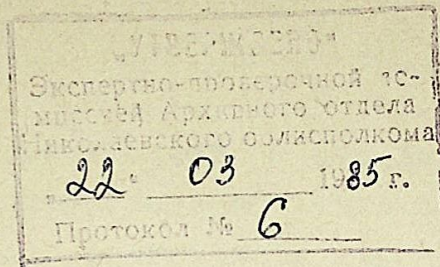 Экспертно-проверочной ко-
миссией Архивного отдела
Николаевского облисполкома
"22" 03 1985 г.
Протокол № 6